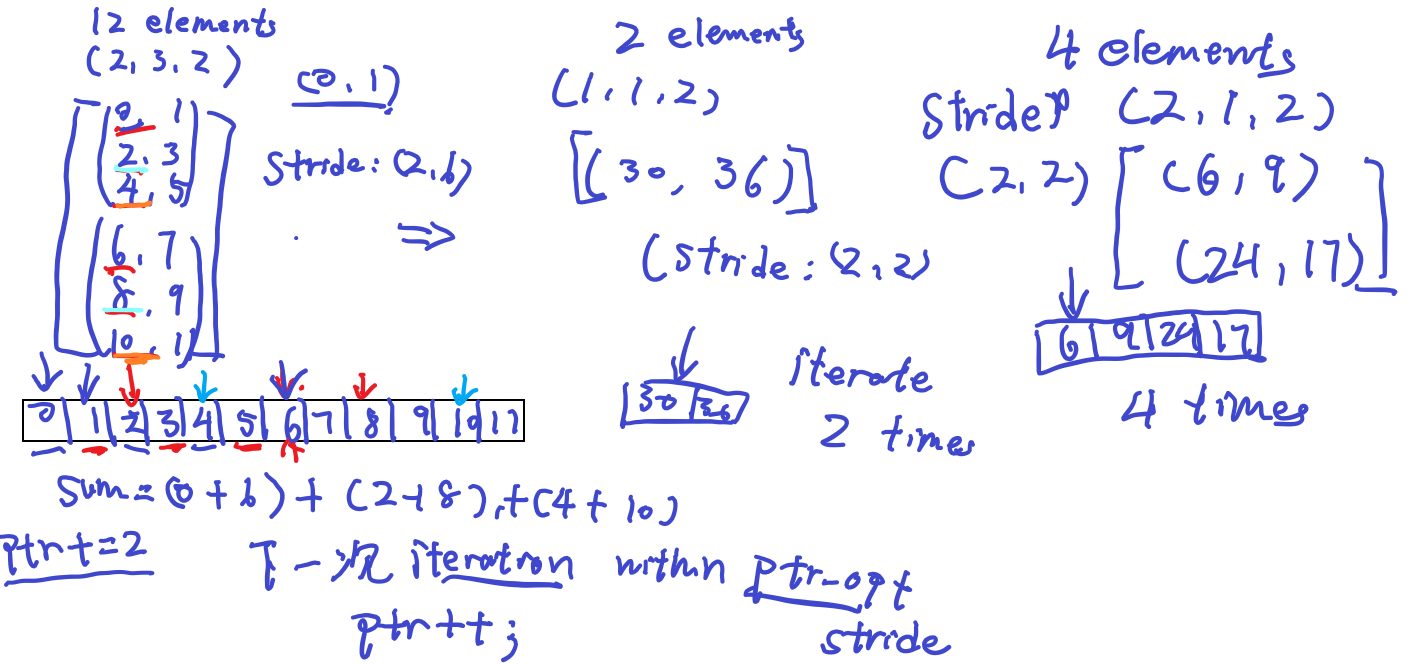 12 elements
(2, 3, 2)
(0, 1)
0, 1
2, 3
4, 5
6, 7
8, 9
10, 11
stride: (2, 6)
⇒
0 1 2 3 4 5 6 7 8 9 10 11
sum = (0 + 6) + (2 + 8) + (4 + 10)
ptr += 2
下一次 iteration within ptr-opt
stride
ptr++;
2 elements
(1, 1, 2)
[(30, 36)]
(stride: (2, 2)
30 36
iterate
2 times
4 elements
stride (2, 1, 2)
(2, 2)
(6, 9)
(24, 17)
6 9 24 17
4 times